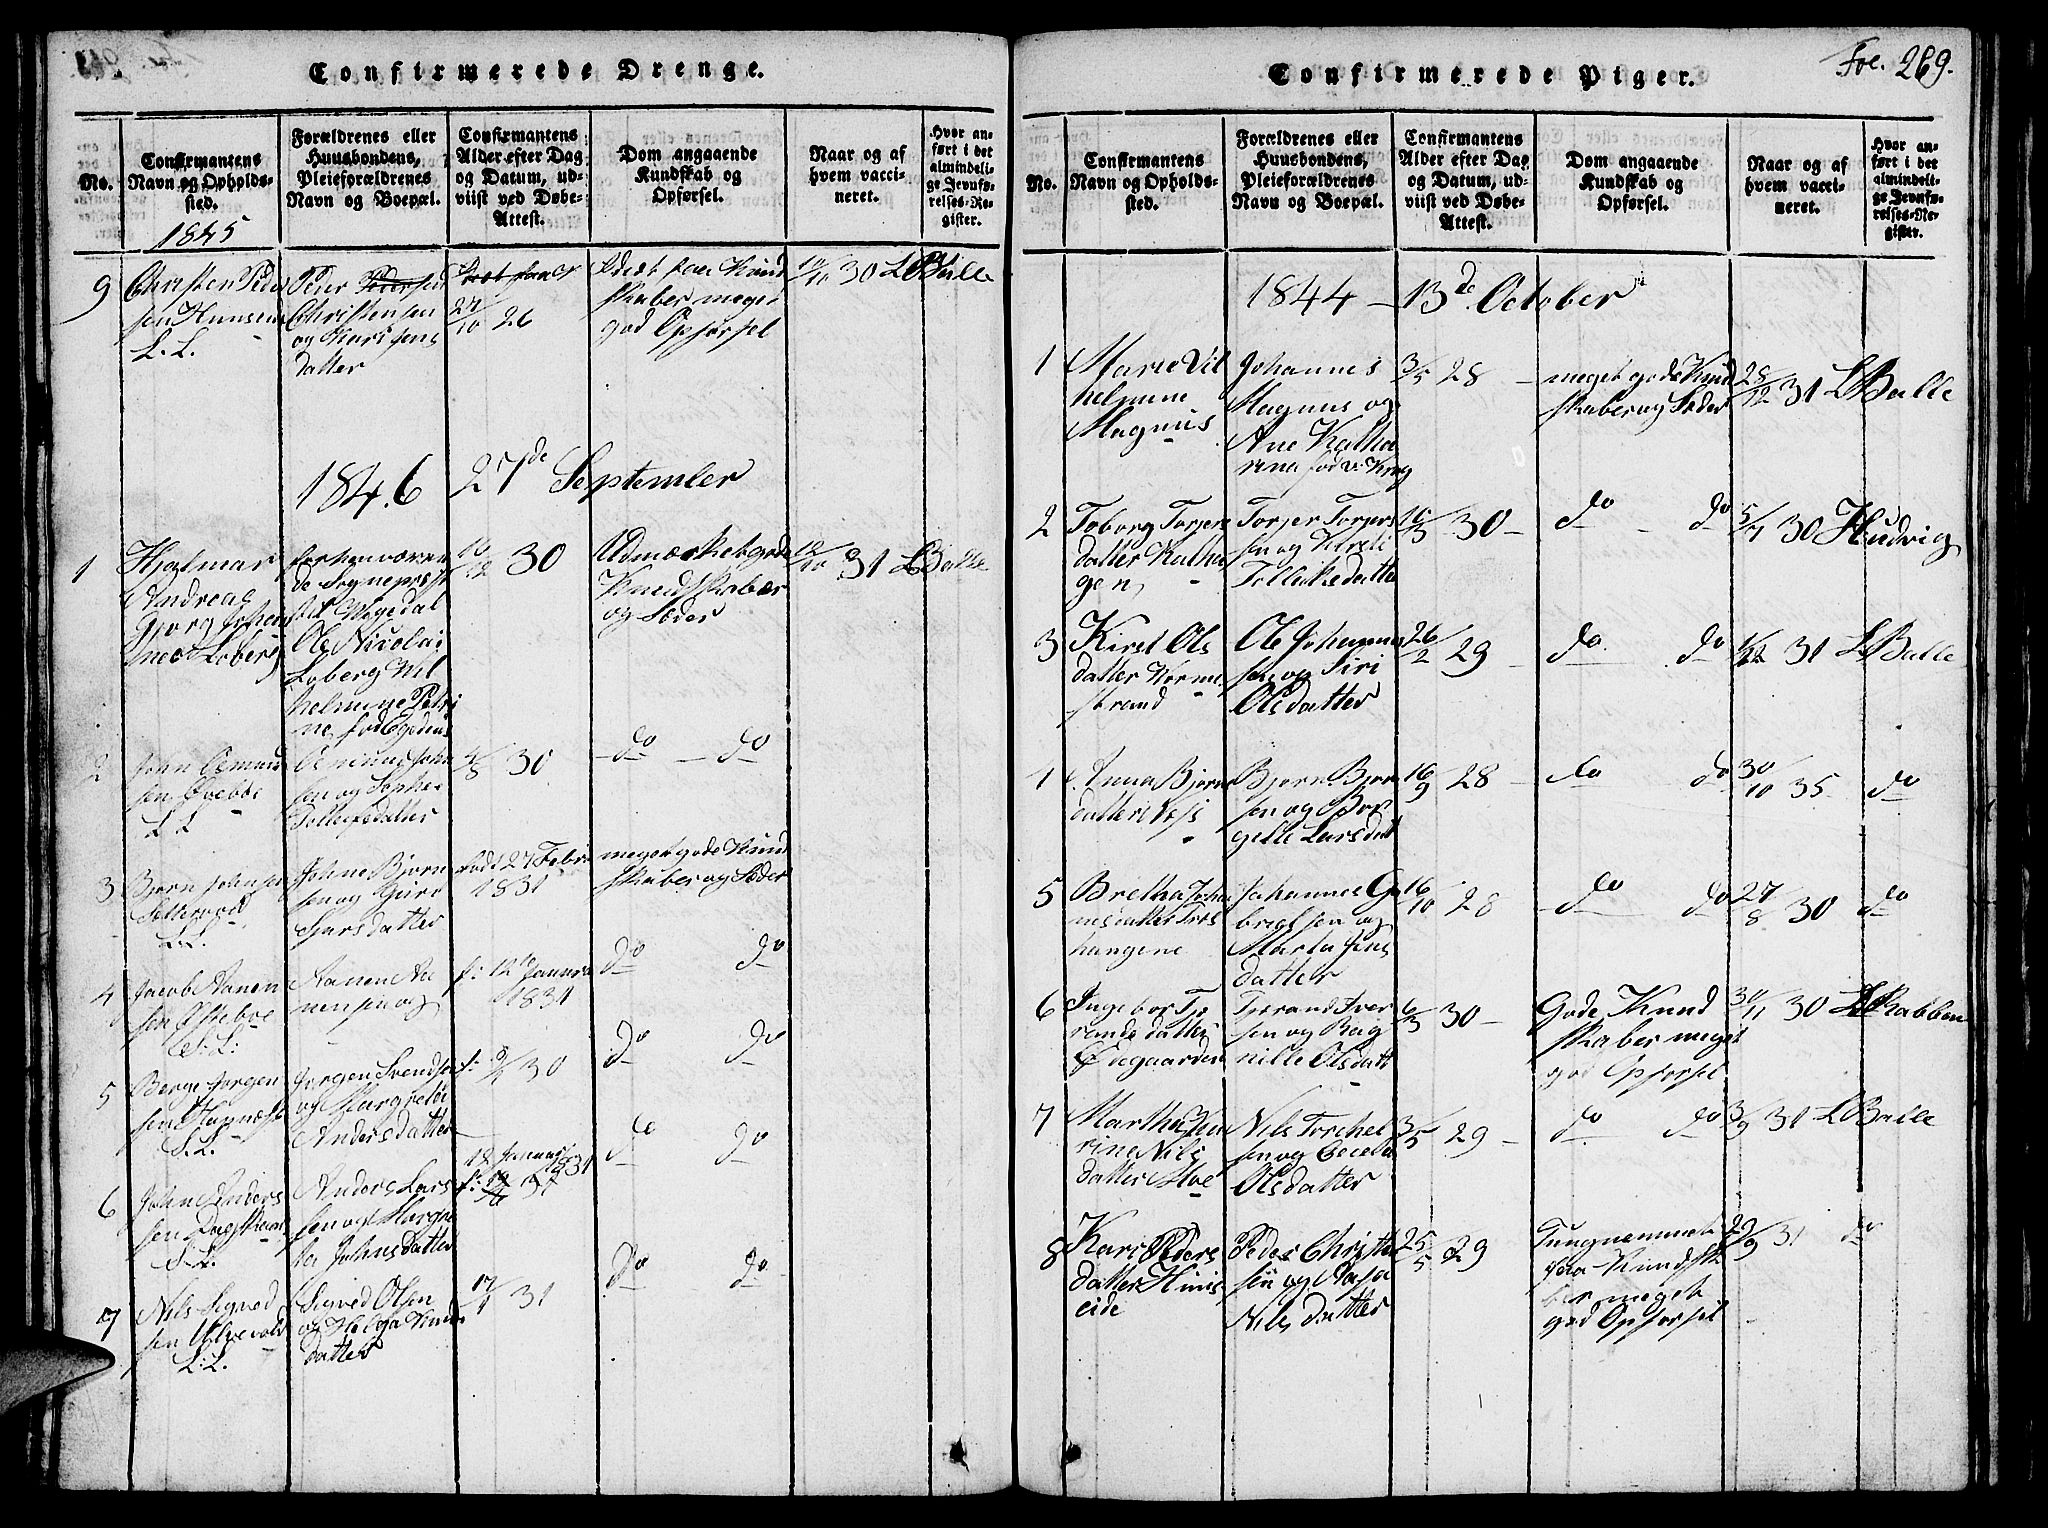 Confirmerede Drenge.
No.
Confirmantens
Navn og Opholds-
sted.
Forældrenes eller
Huusbondens,
Pleieforældrenes
Navn og Boepæl.
Confirmantens
Alder efter Dag
og Datum, ud-
viist ved Døbe-
Attest.
Dom angaaende
Kundskab og
Opførsel.
Naar og af
hvem vacci-
neret.
Hvor an-
ført i det
almindeli-
ge Jevnfø-
relses-Re-
gister.
1845
9
Christen Peder
sen
L. L.
Peder Pedersen
Christensen
og Kari Jens
datter
27/10 26
Kund
skaber meget
god Opførsel
30 L Balle
1846 27de September
1
Hjalmar
Andreas
Gjørg Johan
Loberg
forhenværen
de Sognepræst
Ole Nicolai
Loberg Wil
helmine Petri
ne fød Egedius
16/12 30
Udmærket gode
Kundskaber
og Sæder
12/10 31 L Balle
2
John Osmund
sen
L L
Osmund John
sen og Sophie
Tollefsdatter
4/8 30
do do
3
Bjørn Johnsen
L.L.
Johne Bjørn
sen og Guro
datter
født 27 Febr
1831
meget gode Kund
skaber og Sæder
4
Jacob Aanen
sen Østebøe
L: L:
Aanen Aa
nensen og
f: 12te Januar
1831
do do
5
Berge Jørgen
sen
L.L.
Jørgen Svendsen
og Margrete
Andersdatter
f: 30
do do
6
John Anders
sen
L.L.
Anders Lars
sen og Margre
ta Johnsdatter
12 Januar
1831
do do
7
Nils Sigved
sen
L.L.
Sigved Olsen
og Helga Knuds
datter
17/1 31
do do
Confirmerede Piger.
Fol. 269.
No.
Confirmantens
Navn og Opholds-
sted.
Forældrenes eller
Huusbondens,
Pleieforældrenes
Navn og Boepæl.
Confirmantens
Alder efter Dag
og Datum, ud-
viist ved Døbe-
Attest.
Dom angaaende
Kundskab og
Opførsel.
Naar og af
hvem vacci-
neret.
Hvor an-
ført i det
almindeli-
ge Jevnfø-
relses-Re-
gister.
1844 - 13de October
1
Marie Vil
helmine
Magnus
Johannes
Magnus og
Ane Katha
rina fød v: Krog
3/5 28 -
meget gode Kund
skaber og Sæder
28/12 31 L Balle
2
Toborg Torjers
datter
Torjer Torjers
sen og Kirsti
datter
16/3 30 -
do - do
5/7 30 Hudvig
3
Kirst Ols
datter Korne
strand
Ole Johannes
sen og Siri
Olsdatter
26/2 29 -
do do
31 L Balle
1
Anna Bjørns
datter
Bjørn Bjørn
sen og Bor
gille Larsdatt
16/9 28 -
do do
30/10 35 do
5
Bretha Johan
nesdatter
Johannes Ga
brielsen og
Marta Jens
datter
16/10 28
do do
27/8 30 do
6
Ingebor Tje
randsdatter
Ødegaarden
Tjerand Iver
sen og Rag
nille Olsdatt
6/3 30 -
Gode Kund
skaber meget
god Opførsel
30/11 30 Rabben
7
Martha Ka
rine Nils
datter Moe
Nils Torchel
sen og Cecelia
Olsdatter
3/5 29 -
do do
3/9 31 L Balle
8
Kari Peders
datter
eide
Peder Christen
sen og Aasa
Nilsdatter
25/5 29
Tungnemmet
paa Kundska
ber meget
god Opførsel
29/9 31 do